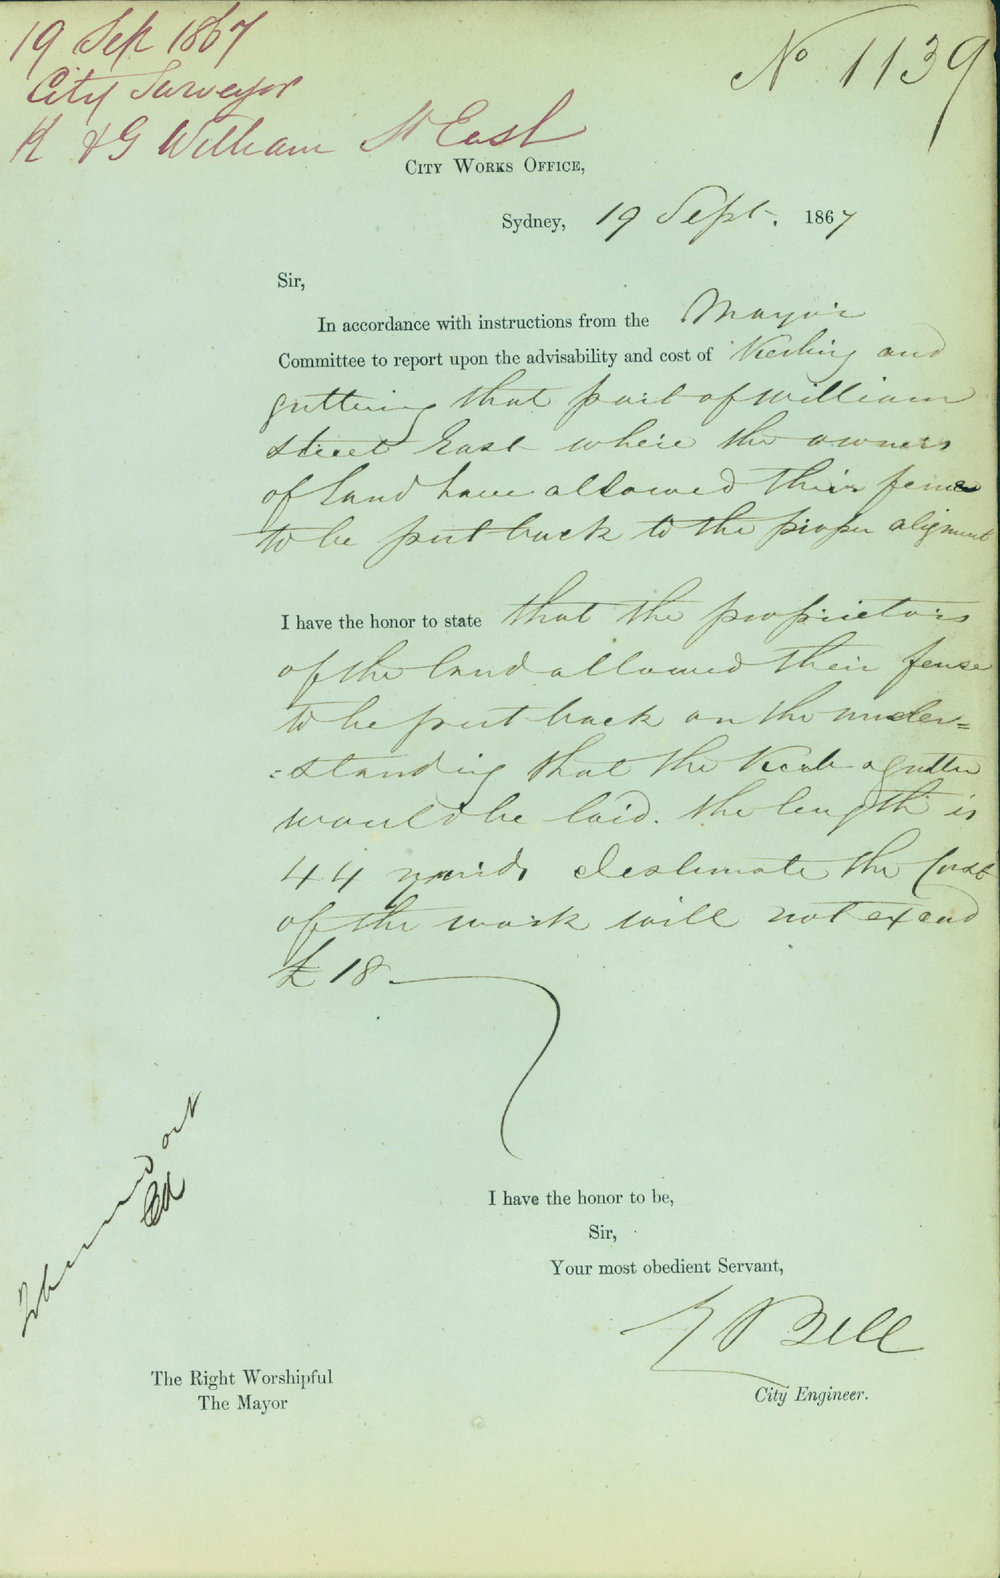 19 Sep 1867
City Surveyor
K & G William St East
No 1139
City Works Office,
Sydney, 19 Sept. 1867
Sir,
In accordance with instructions from the Mayor
Committee to report upon the advisability and cost of Kerbing and
guttering that part of William
street East where the owners
of land have allowed their fence
to be put back to the proper alignment
I have the honor to state that the proprietors
of the land allowed their fense
to be put back on the under=
=standing that the Kerb & gutter
would be laid. The length is
44 yards I estimate the Cost
of the work will not exceed
£18
I have the honor to be,
Sir,
Your most obedient Servant,
E Bell
City Engineer.
The Right Worshipful
The Mayor
To be carried out